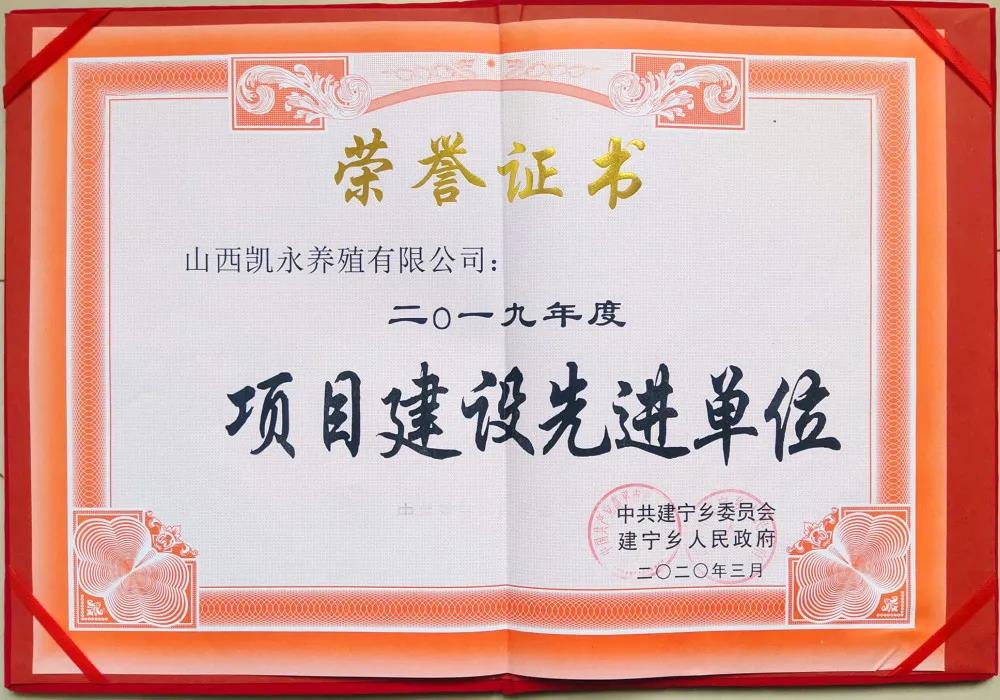 荣誉证书
山西凯永养殖有限公司：
二〇一九年度
项目建设先进单位
中共建宁乡委员会
建宁乡人民政府
二〇二〇年三月